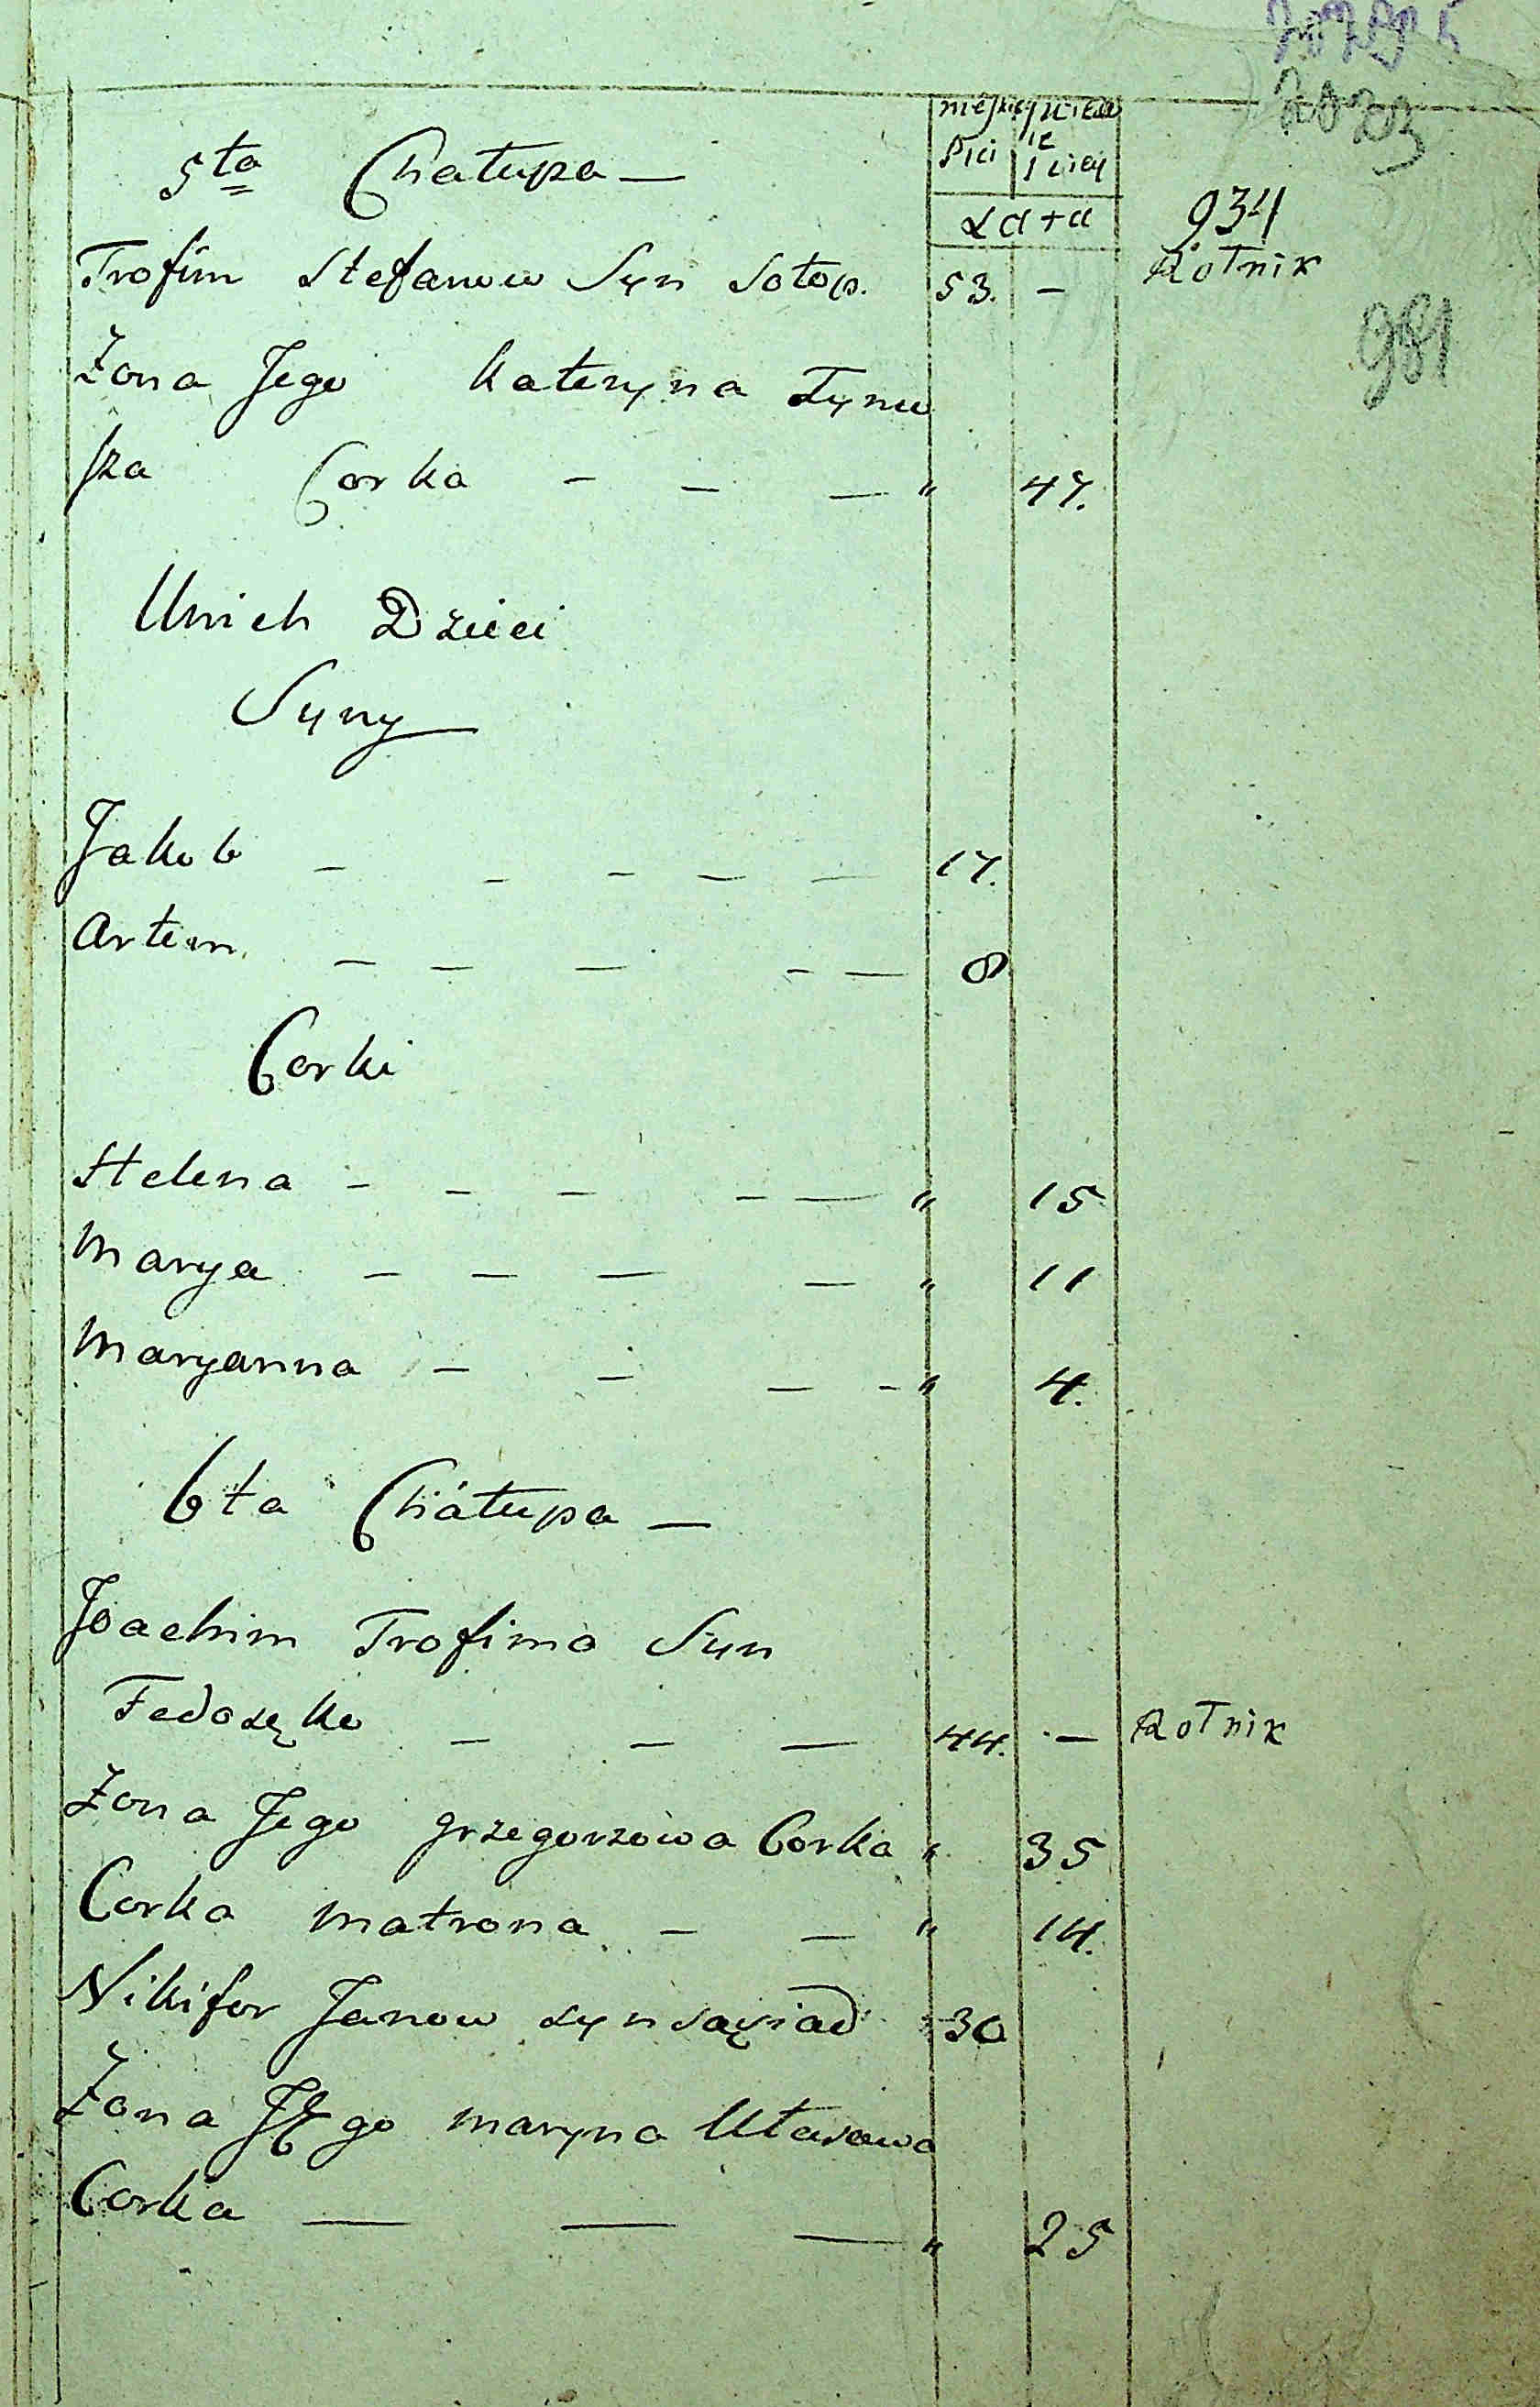 męskiey niewie
płci płciey
Lata
5ta Chałupa —
934
Trofim Stefanow Syn Sołop. 53. — Rolnik
981
Żona Jego Kateryna Tymo
szka Corka — — — " 47.
Unich Dzieci
Syny
Jakob — — — — — 17.
Artem — — — — — 8
Corki
Helena — — — — — " 15
Marya — — — — " 11
Maryanna — — — — " 4.
6ta Chałupa —
Joachim Trofima Syn
Fedosęko — — — 44. — Rolnik
Żona Jego Grzegorzowa Corka " 35
Corka Matrona — — " 14.
Nikifor Janow Syn Sąsiad 30
Żona Jego Maryna Własowa
Corka — — — " 25